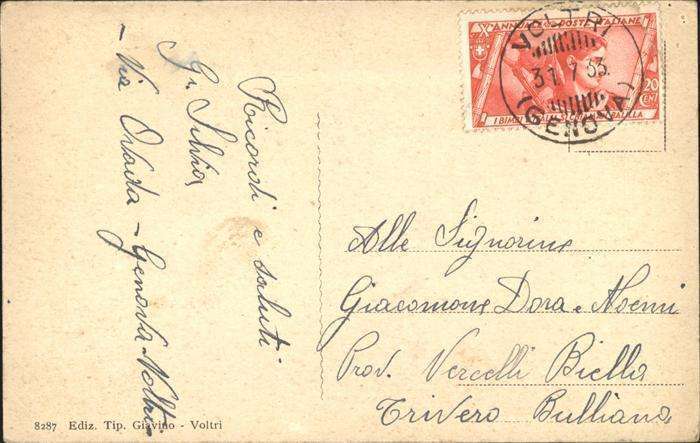 Ricordi e saluti
Gi. Silvia
- Via Ovada - Genova-Voltri -
Xº ANNUALE POSTE ITALIANE
20
CENT
VOLTRI
31.7.33.
(GENOVA)
Alle Signorine
Giacomone Dora e Noemi
Prov. Vercelli Biella
Trivero Bulliana
8287 Ediz. Tip. Giavino - Voltri